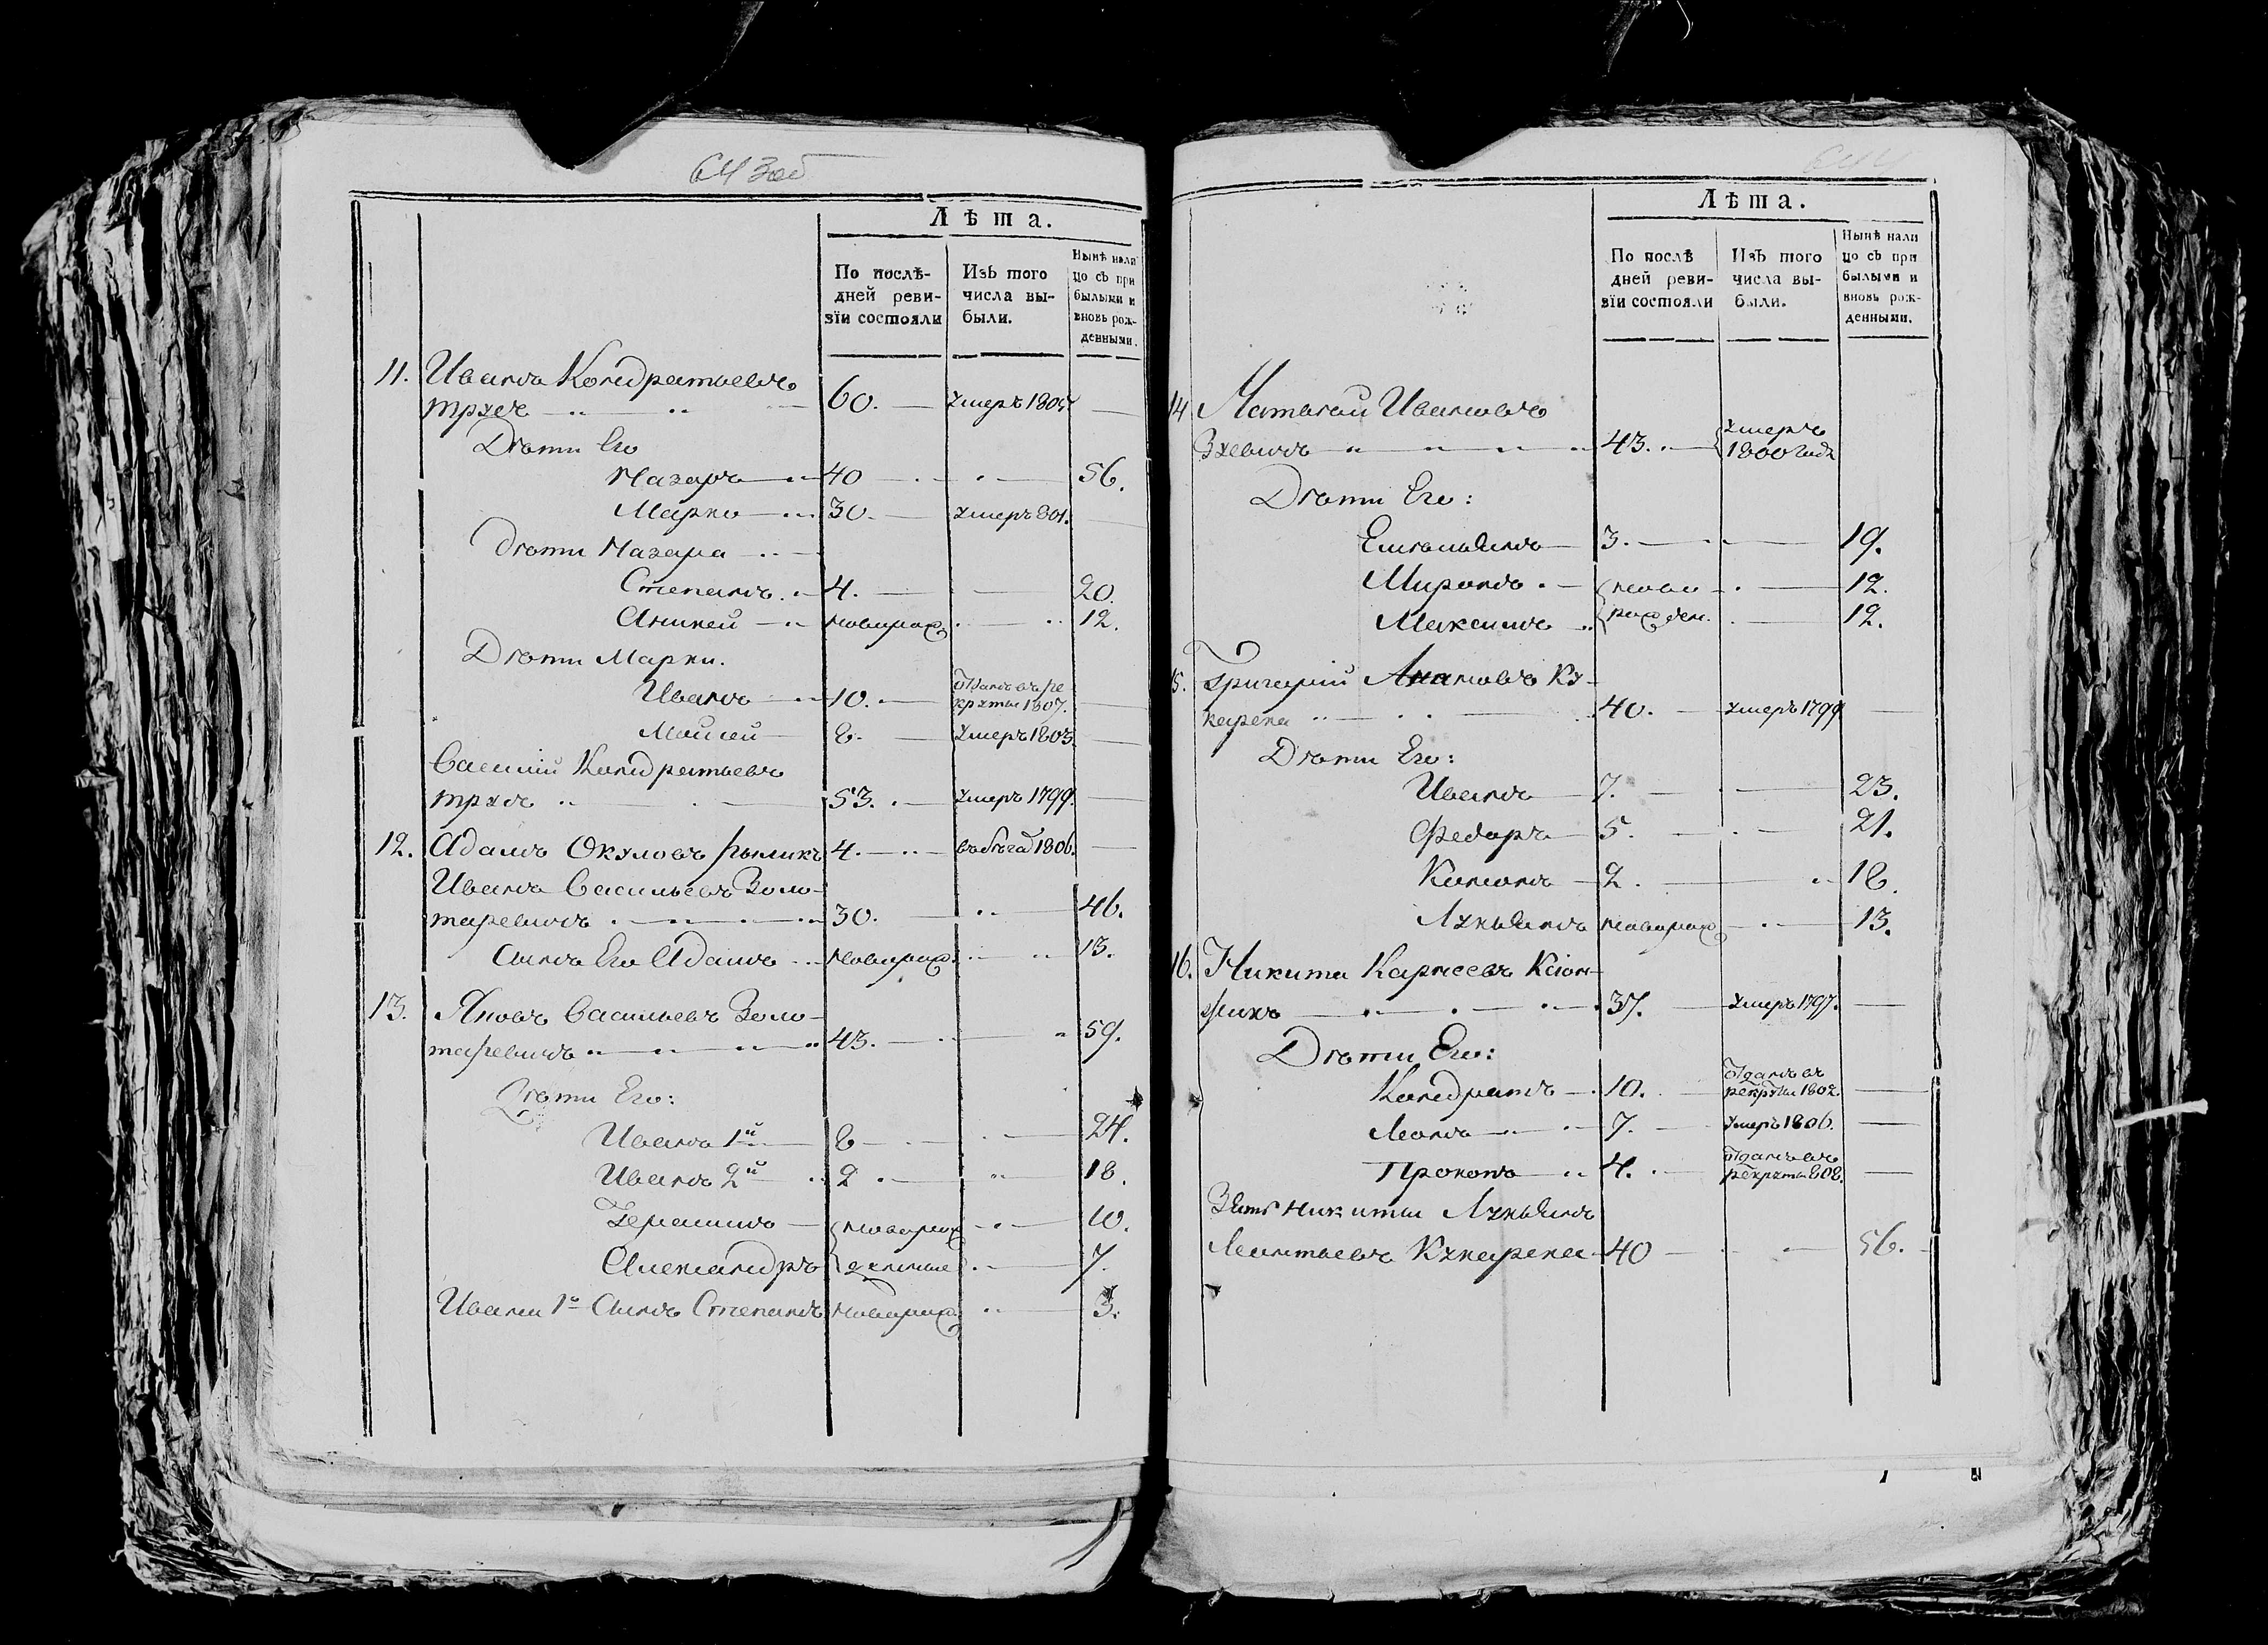 643 об
Лѣта.
По послѣ-
дней реви-
зїи состояли
Изъ того
числа вы-
были.
Нынѣ нали
цо съ при
былыми и
вновь рож-
денными.
11. Иванъ Кондратьевъ
трухъ 60. умеръ 1805
Дѣти Его
Назаръ 40 56.
Марко 30. умеръ 801.
Дѣти Назара
Степанъ 4. 20.
Аникей новорож 12.
Дѣти Марки.
Иванъ 10. отданъ въ ре
круты 1807.
Мойсей 8. умеръ 1803.
Василій Кондратьевъ
трухъ 53. умеръ 1799.
12. Адамъ Окуловъ рымикъ 4. въ бѣгах 1806.
Иванъ Васильевъ Золо-
таревичъ 30. 46.
Сынъ Его Адамъ новорож. 13.
13. Яковъ Васильевъ Золо-
таревичъ 43. 59.
Дѣти Его:
Иванъ 1й 8 24.
Иванъ 2й 2 18.
Герасимъ новорож 10.
Александръ 7.
Ивана 1го Сынъ Степанъ новорож. 3.
644
Лѣта.
По послѣ
дней реви-
зїи состояли
Изъ того
числа вы-
были.
Нынѣ нали
цо съ при
былыми и
вновь рож-
денными.
14 Матвей Ивановъ
Зуевичъ 43. умеръ
1800 года
Дѣти Его:
Емельянъ 3. 19.
Миронъ ново 12.
Максимъ рожден. 12.
15. Григорій Анановъ Ку-
карека 40. умеръ 1799
Дѣти Его:
Иванъ 7. 23.
Федоръ 5. 21.
Кононъ 2. 18.
Лукьянъ новорож 13.
16. Никита Карнеевъ Ксіон-
жикъ 37. умеръ 1797.
Дѣти Его:
Кондратъ 10. отданъ въ
рекруты 1802.
Леонъ 7. умеръ 1806.
Прокопъ 4. отданъ въ
рекруты 808.
Зять Никиты Лукьянъ
Леонтьевъ Кукарека 40 56.